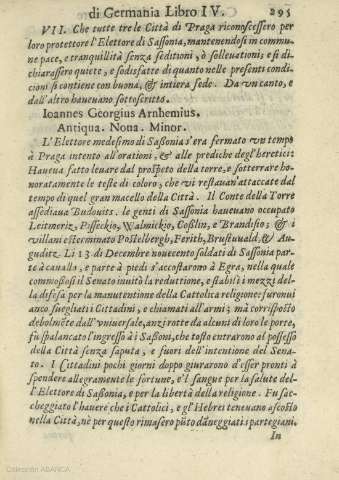 di Germania Libro IV. 295
VII. Che tutte tre le Città di Praga riconoscessero per
loro protettore l'Elettore di Sassonia, mantenendosi in commu-
ne pace, e tranquillità senza seditioni, ò solleuationi; e si di-
chiarassero quiete, e sodisfatte di quanto nelle presenti condi-
cioni si contiene con buona, & intiera fede. Da vn canto, e
dall'altro haueuano sottoscritto.
Ioannes Georgius Arnhemius.
Antiqua. Noua. Minor.
L'Elettore medesimo di Sassonia s'era fermato vn tempo
à Praga intento all'orationi, & alle prediche degl'heretici:
Haueua fatto leuare dal prospeto della torre, e sotterrare ho-
noratamente le teste di coloro, che vi restauan'attaccate dal
tempo di quel gran macello della Città. Il Conte della Torre
assediaua Budouits. le genti di Sassonia haueuano occupato
Leitmeriz, Pisseckio, Walmickio, Cosslin, e Brandisio; & i
villani esterminato Postelbergh, Ferith, Brustuuald, & Au-
guditz. Li 13 di Decembre nouecento soldati di Sassonia par-
te à cauallo, e parte à piedi s'accostarono à Egra, nella quale
commossosi il Senato inuitò la reduttione, e stabilì i mezzi del-
la difesa per la manutentione della Cattolica religione: furonui
anco suegliati i Cittadini, e chiamati all'armi; mà corrisposto
debolmēte dall'vniuersale, anzi rotte da alcuni di loro le porte,
fù spalancato l'ingresso à i Sassoni, che tosto entrarono al possesso
della Città senza saputa, e fuori dell'intentione del Sena-
to. I Cittadini pochi giorni doppo giurarono d'esser pronti à
spendere allegramente le fortune, e'l sangue per la salute del-
l'Elettore di Sassonia, e per la libertà della religione. Fu sac-
cheggiato l'hauere che i Cattolici, e gl'Hebrei teneuano ascosto
nella Città, nè per questo rimasero pūto dāneggiati i partegiani.
In
Colección ABANCA